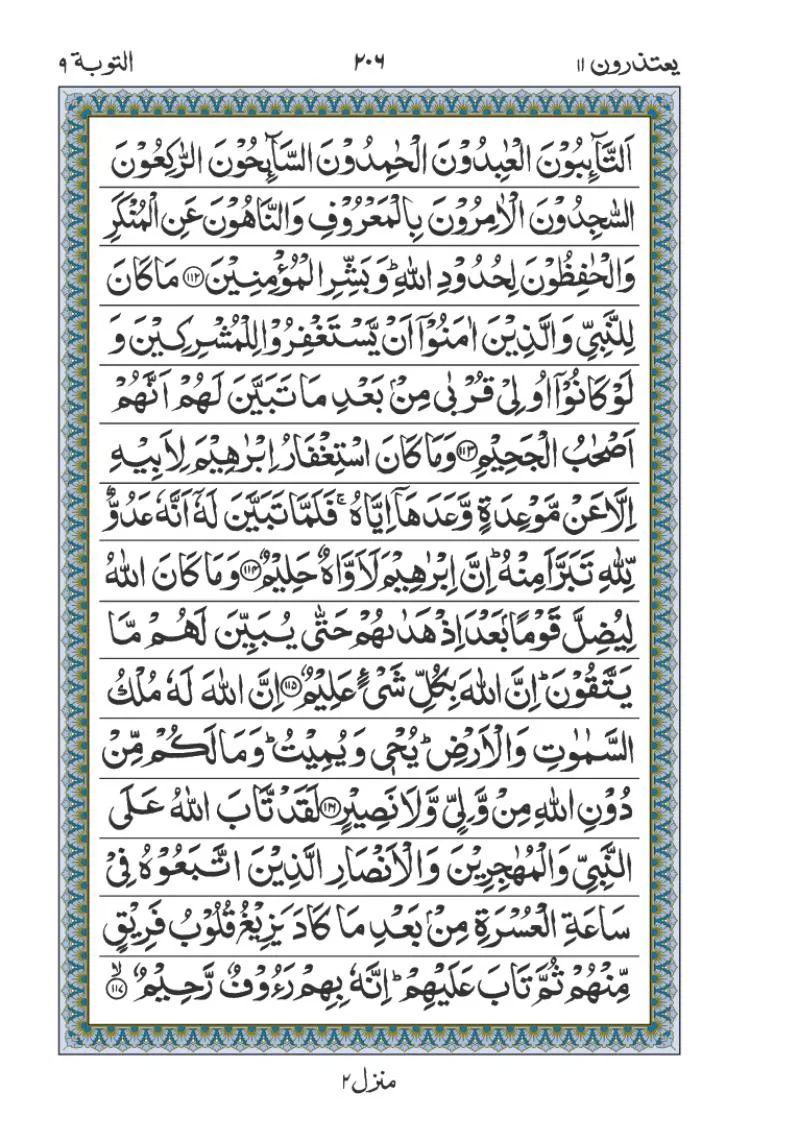 يعتذرون ١١ ٢٠٦ التوبة ٩
اَلتَّآىِٕبُوْنَ الْعٰبِدُوْنَ الْحٰمِدُوْنَ السَّآىِٕحُوْنَ الرّٰكِعُوْنَ
السّٰجِدُوْنَ الْاٰمِرُوْنَ بِالْمَعْرُوْفِ وَالنَّاهُوْنَ عَنِ الْمُنْكَرِ
وَالْحٰفِظُوْنَ لِحُدُوْدِ اللّٰهِ ؕ وَبَشِّرِ الْمُؤْمِنِيْنَ ﴿۱۱۲﴾ مَا كَانَ
لِلنَّبِيِّ وَالَّذِيْنَ اٰمَنُوْۤا اَنْ يَّسْتَغْفِرُوْا لِلْمُشْرِكِيْنَ وَ
لَوْ كَانُوْۤا اُولِيْ قُرْبٰى مِنْۢ بَعْدِ مَا تَبَيَّنَ لَهُمْ اَنَّهُمْ
اَصْحٰبُ الْجَحِيْمِ ﴿۱۱۳﴾ وَمَا كَانَ اسْتِغْفَارُ اِبْرٰهِيْمَ لِاَبِيْهِ
اِلَّا عَنْ مَّوْعِدَةٍ وَّعَدَهَاۤ اِيَّاهُ ۚ فَلَمَّا تَبَيَّنَ لَهٗۤ اَنَّهٗ عَدُوٌّ
لِّلّٰهِ تَبَرَّاَ مِنْهُ ؕ اِنَّ اِبْرٰهِيْمَ لَاَوَّاهٌ حَلِيْمٌ ﴿۱۱۴﴾ وَمَا كَانَ اللّٰهُ
لِيُضِلَّ قَوْمًۢا بَعْدَ اِذْ هَدٰىهُمْ حَتّٰى يُبَيِّنَ لَهُمْ مَّا
يَتَّقُوْنَ ؕ اِنَّ اللّٰهَ بِكُلِّ شَيْءٍ عَلِيْمٌ ﴿۱۱۵﴾ اِنَّ اللّٰهَ لَهٗ مُلْكُ
السَّمٰوٰتِ وَالْاَرْضِ ؕ يُحْيٖ وَيُمِيْتُ ؕ وَمَا لَكُمْ مِّنْ
دُوْنِ اللّٰهِ مِنْ وَّلِيٍّ وَّلَا نَصِيْرٍ ﴿۱۱۶﴾ لَقَدْ تَّابَ اللّٰهُ عَلَى
النَّبِيِّ وَالْمُهٰجِرِيْنَ وَالْاَنْصَارِ الَّذِيْنَ اتَّبَعُوْهُ فِيْ
سَاعَةِ الْعُسْرَةِ مِنْۢ بَعْدِ مَا كَادَ يَزِيْغُ قُلُوْبُ فَرِيْقٍ
مِّنْهُمْ ثُمَّ تَابَ عَلَيْهِمْ ؕ اِنَّهٗ بِهِمْ رَءُوْفٌ رَّحِيْمٌ ۙ﴿۱۱۷﴾
منزل ٢